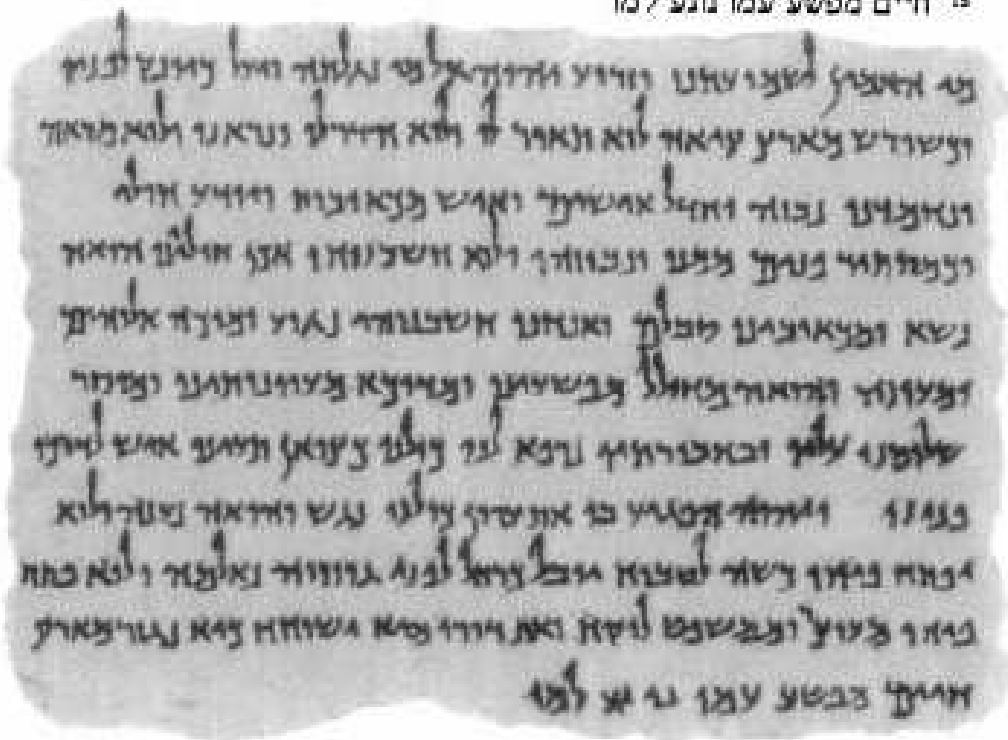 חיים מפשע עמו נוגע למו
מי האמין לשמועתנו וזרוע יהוה אל מי נגלתה ויעל כיונק לפניו
וכשורש מארץ ציאה לוא תאור לו ולוא הדר לו ונראנו ולוא מראה
ונחמדנו נבזה וחדל אישים ואיש מכאובות ויודע חולי
וכמסתר פנים ממנו ונבוזהו ולוא חשבנוהו אכן חוליינו הואה
נשא ומכאובינו סבלם ואנחנו חשבנוהו נגוע ומוכה אלוהים
ומעונה והואה מחולל מפשעינו ומדוכא מעוונותינו ומוסר
שלומנו עליו ובחבורתיו נרפא לנו כולנו כצואן תעינו איש לדרכו
פנינו ויהוה הפגיע בו את עוון כולנו נגש והואה נענה ולוא
יפתח פיהו כשה לטבוח יובל כרחל לפני גוזזיה נאלמה ולוא פתח
פיהו מעוצר וממשפט לוקח ואת דורו מיא ישוחח כיא נגזר מארץ
חיים מפשע עמו נוגע למו